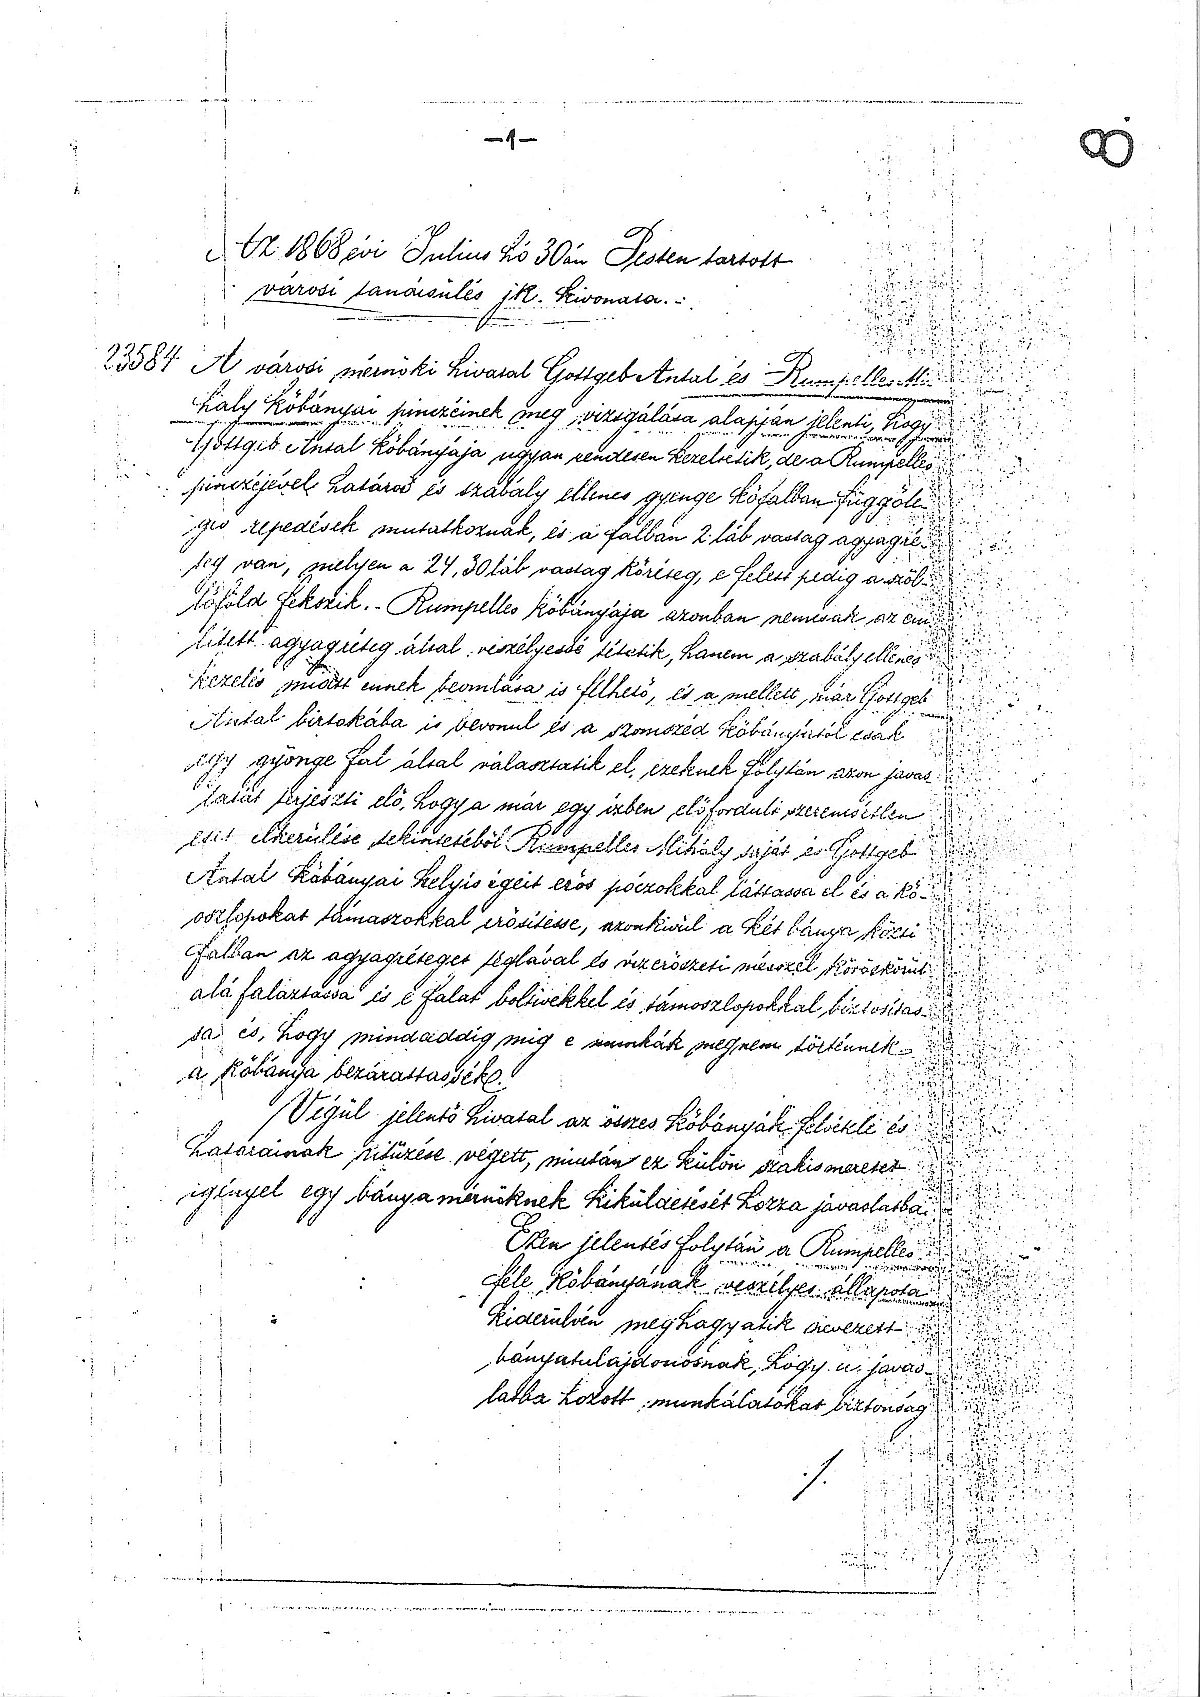 -1-
8
Az 1868 évi Julius hó 30án Pesten tartott
városi tanácsülés jk. kivonata.-:
23584 A városi mérnöki hivatal Gottgeb Antal és Rumpelles Mi-
hály kőbányai pinczéinek meg vizsgálása alapján jelenti, hogy
Gottgeb Antal kőbányája ugyan rendesen kezeltetik, de a Rumpelles
pinczéjével határos és szabály ellenes gyenge kőfalban függőle-
ges repedések mutatkoznak, és a falban 2 láb vastag agyagré-
teg van, melyen a 24, 30 láb vastag kőréteg, e felett pedig a szől-
lőföld fekszik.- Rumpelles kőbányája azonban nemcsak az em-
lített agyagréteg által veszélyessé tétetik, hanem a szabályellenes
kezelés miatt ennek beomlása is félhető, és a mellett már Gottgeb
Antal birtokába is bevonul és a szomszéd kőbányától csak
egy gyönge fal által választatik el, ezeknek folytán azon javas
latát terjeszti elő, hogy a már egy izben előfordult szerencsétlen
eset elkerülése tekintetéből Rumpelles Mihály saját és Gottgeb
Antal kőbányai helyiségeit erős póczokkal láttassa el és a kő-
oszlopokat támaszokkal erősítesse, azonkivül a két bánya közti
falban az agyagréteget téglával és vizerőszeti mésszel köröskörül
alá falaztassa és e falat boltívekkel és támoszlopokkal biztosítas-
sa és, hogy mindaddig míg e munkák meg nem történnek-
a kőbánya bezárattassék.
Végül jelentő hivatal az összes kőbányák felvétele és
határainak kitűzése végett, miután ez külön szakismeretet
igényel egy bánya mérnöknek kiküldetését hozza javaslatba.
Ezen jelentés folytán a Rumpelles
féle kőbányának veszélyes állapota
kiderülvén meghagyatik nevezett
bányatulajdonosnak, hogy a javas-
latba hozott munkálatokat biztonság
./.